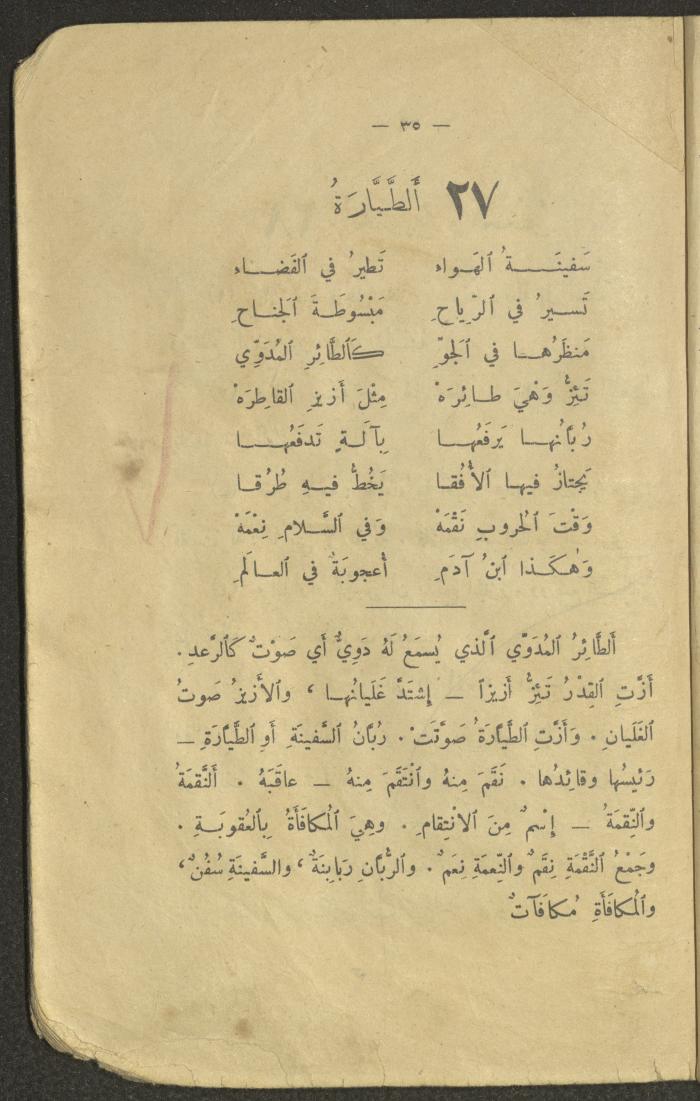 — ٣٥ —
٢٧ أَلطَّيَّارَةُ
سَفينَـــــةُ ٱلهَـواء تَطيرُ في ٱلفَضـــاء
تَســـيرُ في ٱلرِّياحِ مَبْسُوطَـةَ ٱلجَنـاحِ
مَنظَرُهـــا في ٱلجَوِّ كَٱلطَّائِرِ ٱلمُدَوِّي
تَئِزُّ وَهْيَ طـائِرَهْ مِثْلَ أَزيزِ ٱلقاطِرَهْ
رُبَّانُهـا يَرفَعُهـــا بِآلَـةٍ تَدفَعُهـــا
يَجتازُ فيهـا ٱلأُفُقـا يَخُطُّ فيـهِ طُرُقـا
وَقْتَ ٱلحُروبِ نَقْمَهْ وَفي ٱلسَّلامِ نِعْمَهْ
وَهٰكَـذا ٱبنُ آدَمِ أُعجوبَةٌ في ٱلعـالَمِ
أَلطَّائِرُ ٱلمُدَوِّي ٱلَّذي يُسمَعُ لَهُ دَوِيٌّ أَي صَوْتٌ كَٱلرَّعدِ.
أَزَّتِ ٱلقِدْرُ تَئِزُّ أَزيزاً — إِشتَدَّ غَلَيانُهـا ، وٱلأَزيزُ صَوتُ
ٱلغَلَيانِ. وَأَزَّتِ ٱلطَّيَّارَةُ صَوَّتَتْ. رُبَّانُ ٱلسَّفينَةِ أَوِ ٱلطَّيَّارَةِ —
رَئيسُها وقائِدُها. نَقَمَ مِنهُ وٱنْتَقَمَ مِنهُ — عاقَبَهُ. أَلنَّقمَةُ
وٱلنِّقمَةُ — إِسْمٌ مِنَ ٱلانتِقامِ. وهِيَ ٱلمُكافَأَةُ بِٱلعُقوبَـةِ.
وجَمْعُ ٱلنَّقْمَةِ نِقَمٌ وٱلنِّعمَةِ نِعَمٌ. وٱلرُّبَّانِ رَبابِنَةٌ، وٱلسَّفينَةِ سُفُنٌ،
وٱلمُكافَأَةِ مُكافَآتٌ